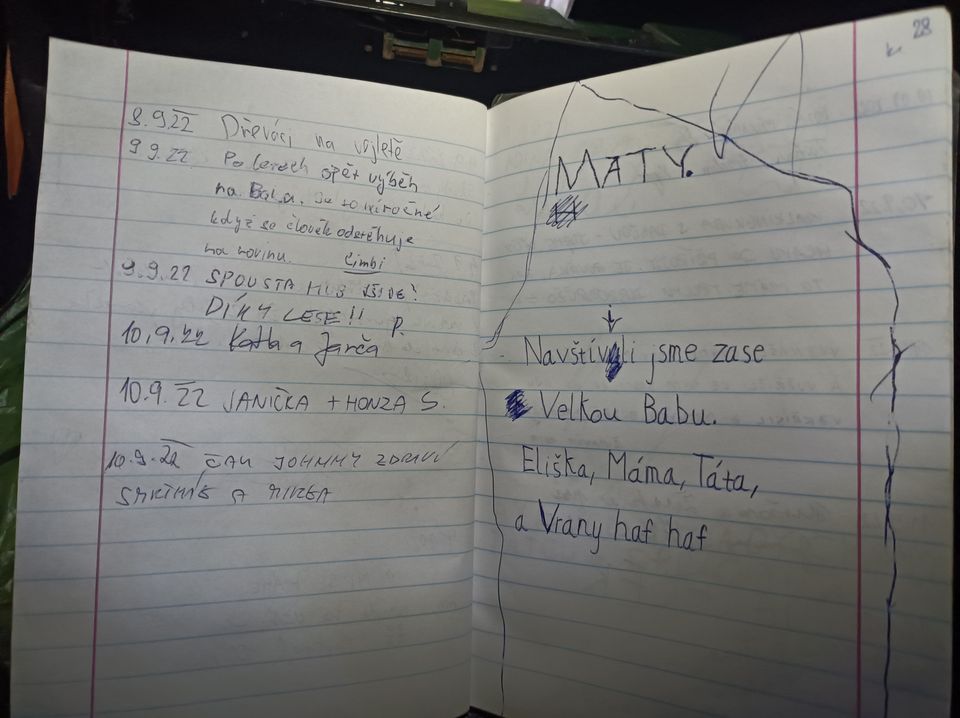 8.9.22 Dřeváci na výletě
9.9.22. Po letech opět výběh
na Babu. Je to náročné
když se člověk odstěhuje
na rovinu. Cimbi
9.9.22 SPOUSTA HUB VŠUDE!
DÍKY LESE!! P.
10.9.22 Katka a Jarča
10.9.22 JANIČKA + HONZA S.
10.9.22 ČAU JOHNNY ZDRAVÍ
A
28
MATY.
Navštívili jsme zase
Velkou Babu.
Eliška, Máma, Táta,
a Vrany haf haf